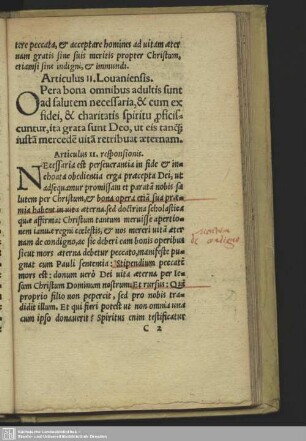 tere peccata, & acceptare homines ad uitam æter
nam gratis sine suis meritis propter Christum,
etiamsi sint indigni, & immundi.
Articulus II. Louaniensis.
Opera bona omnibus adultis sunt
ad salutem necessaria, & cum ex
fidei, & charitatis spiritu pficis-
cuntur, ita grata sunt Deo, ut eis tanq̃
iustā mercedē uitā retribuat æternam.
Articulus II. responsionis.
Necessaria est perseuerantia in fide & in-
choata obedientia erga præcepta Dei, ut
adsequamur promissam et paratā nobis sa
lutem per Christum, & bona opera etiā sua præ-
mia habent in uita æterna, sed doctrina scholastica
quæ affirmat Christum tantum meruisse apertio-
nem ianuæ regni cœlestis, & nos mereri uitā æter
nam de condigno, ac sic deberi eam bonis operibus
sicut mors æterna debetur peccato, manifeste pu-
gnat cum Pauli sententia: Stipendium peccati
mors est: donum uerò Dei uita æterna per Ie-
sum Christum Dominum nostrum. Et rursus: Qui
proprio filio non pepercit, sed pro nobis tra-
didit illum. Et qui fieri potest ut non omnia unà
cum ipso donauerit? Spiritus enim testificatur
C 2
de condigno